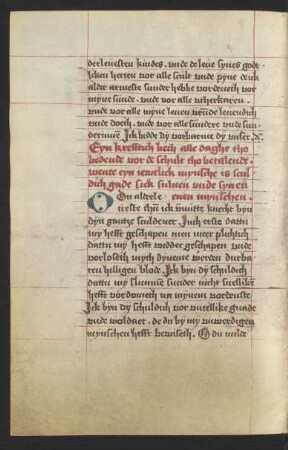 derlevesten kindes. vnde de leue synes gode-
liken herten vor alle scult vnde pyne de ik
alder armeste sunder hebbe vordenet vor
myne sunde. vnde vor alle
vnde vor alle myne leuen vrunde leuendich
vnde doeth. vnde vor alle sundere vnde sun-
Ick bede dy vorbarme dy vnser.
Eyn krefftich beth alle daghe tho
bedende vor de schult tho betalende
wente eyn iewelick mynsche is scul
dich gade sick suluen vnde synen
O Du alder- euen mynschen.
ueste here ick knecht byn
dyn gantze schuldener. Int erste dattu
my hefft geschapen men meer plichtich
dattu my hefft wedder geschapen vnde
vorloseth mych dyneme werden durba
ren hilligen blode. Ick byn dy schuldich
dattu my sunder nicht
hefft vordometh na mynem vordenste
Ick byn dy schuldich vor gnade
vnde woldaet. de du by my vnwerdigen
mynschen hefft bewiseth. O du milde